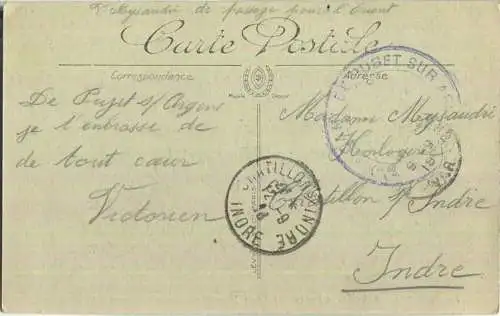 de passage pour l'Orient
Carte Postale
Correspondance
Adresse
De Puget s/ Argens
je t'embrasse de
de tout cœur
Victorien
Madame Meysandri
Horloger
Chatillon s/ Indre
Indre
CHATILLON S INDRE
INDRE
PUGET SUR
VAR